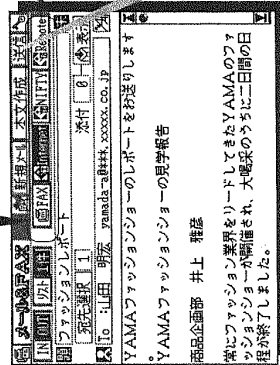 メール&FAX 新規メール 本文作成 送信
IN OUT リスト FAX NIFTY Remote
ファッションレポート
宛先選択 1 添付 0 表示
To :山田 明宏 yamada-a@***.xxxxx.co.jp
YAMAファッションショーのレポートをお送りします
。
YAMAファッションショーの見学報告
商品企画部 井上 雅彦
常にファッション業界をリードしてきたYAMAのファ
ッションショーが開催され、大喝采のうちに二日間の日
程が終了しました。